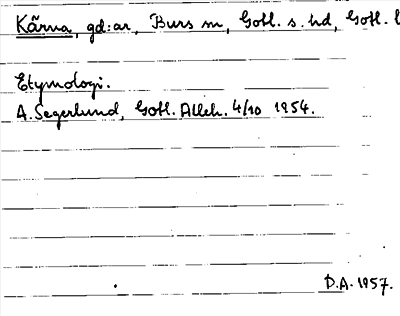 Kärna, gd:ar, Burs sn, Gotl. s. hd, Gotl. l
Etymologi.
A. Segerlund, Gotl. Alleh. 4/10 1954.
D.A. 1957.